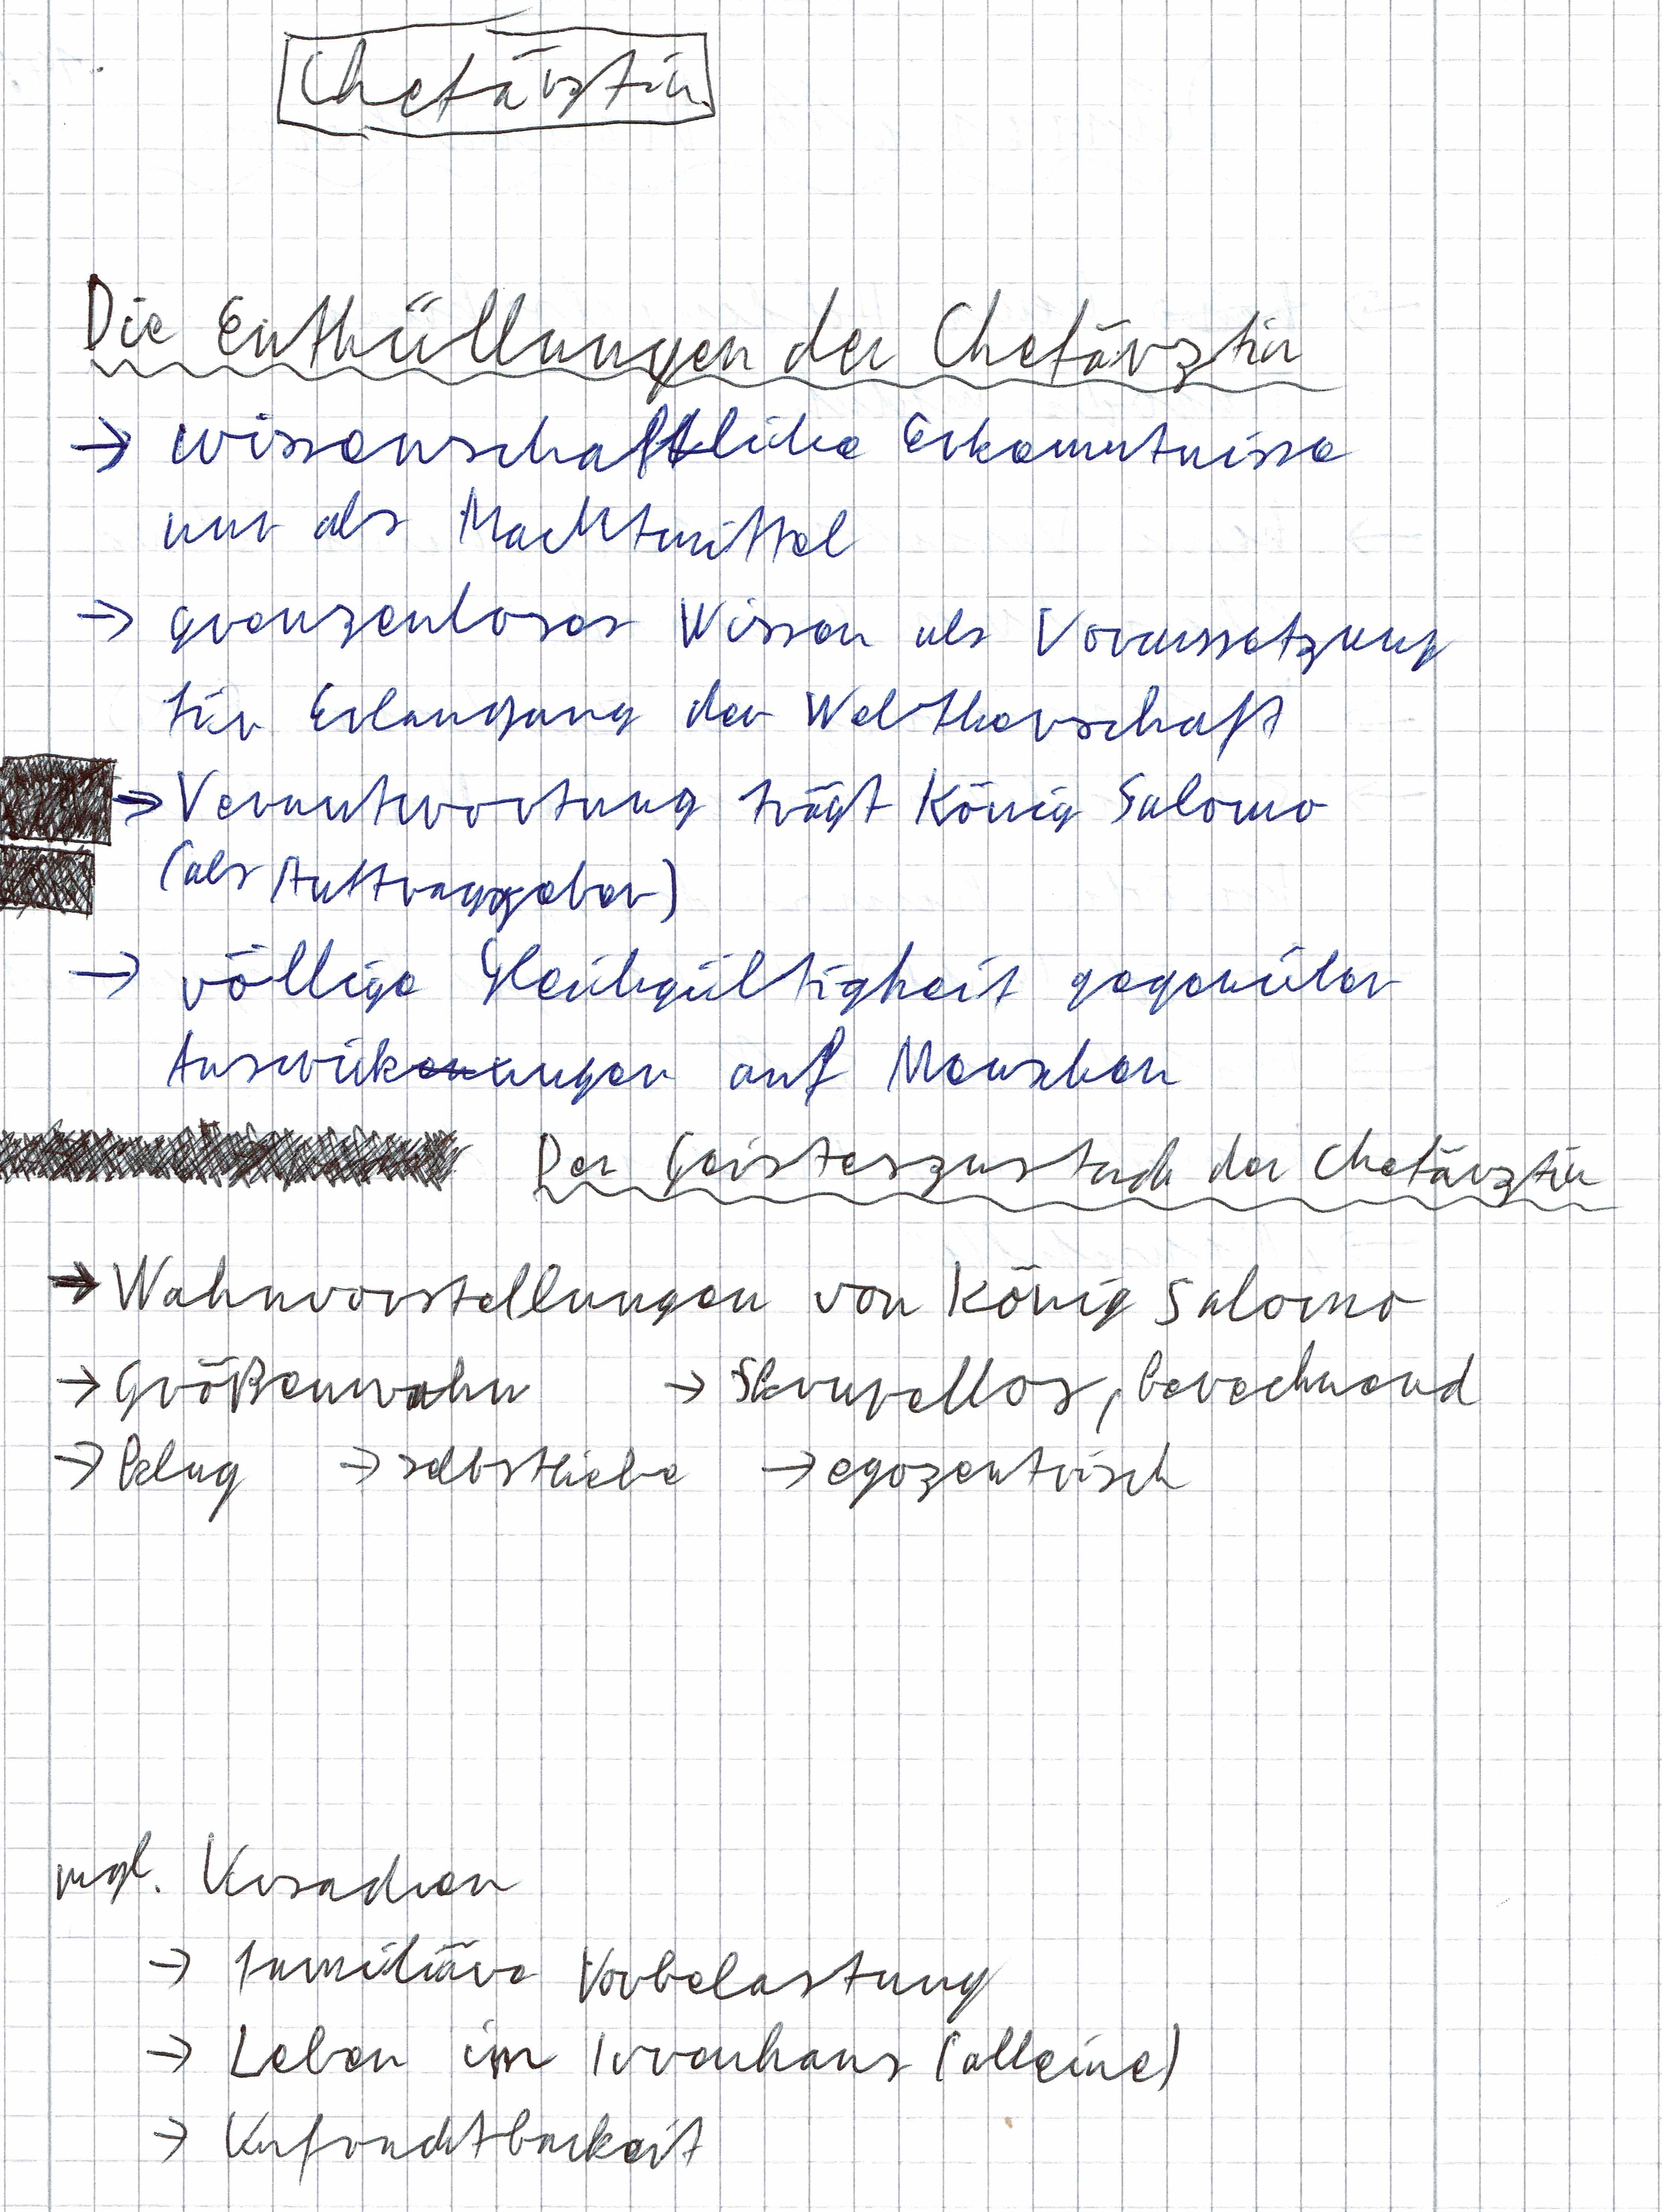 Chefärztin
Die Enthüllungen der Chefärztin
→ wissenschaftliche Erkenntnisse
nur als Machtmittel
→ grenzenloses Wissen als Voraussetzung
für Erlangung der Weltherschaft
→ Verantwortung trägt König Salomo
(als Auftraggeber)
→ völlige Gleichgültigkeit gegenüber
Auswirkungen auf Menschen
Der Geisteszustand der Chefärztin
→ Wahnvorstellungen von König Salomo
→ Größenwahn → Skrupellos, berechnend
→ klug → selbstliebe → egozentrisch
mgl. Ursachen
→ familiäre Vorbelastung
→ Leben im Irrenhaus (alleine)
→ Unfruchtbarkeit